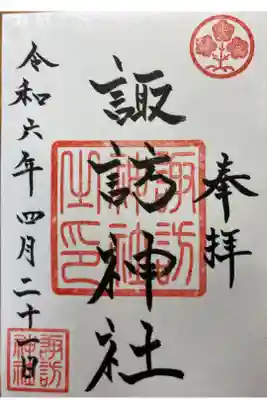 奉拝
諏訪神社
諏訪神社之印
令和六年四月二十一日
諏訪神社